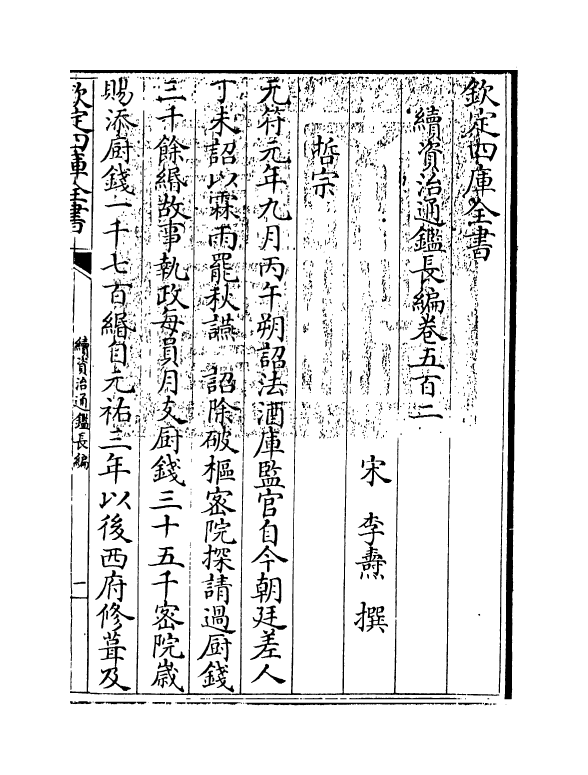 欽定四庫全書
續資治通鑑長編卷五百二
宋 李燾 撰
哲宗
元符元年九月丙午朔詔法酒庫監官自今朝廷差人
丁未詔以霖雨罷秋讌 詔除破樞密院探請過厨錢
三千餘緡故事執政每員月支厨錢三十五千密院歲
賜添厨錢一千七百緡自元祐三年以後西府修葺及
欽定四庫全書
續資治通鑑長編
一